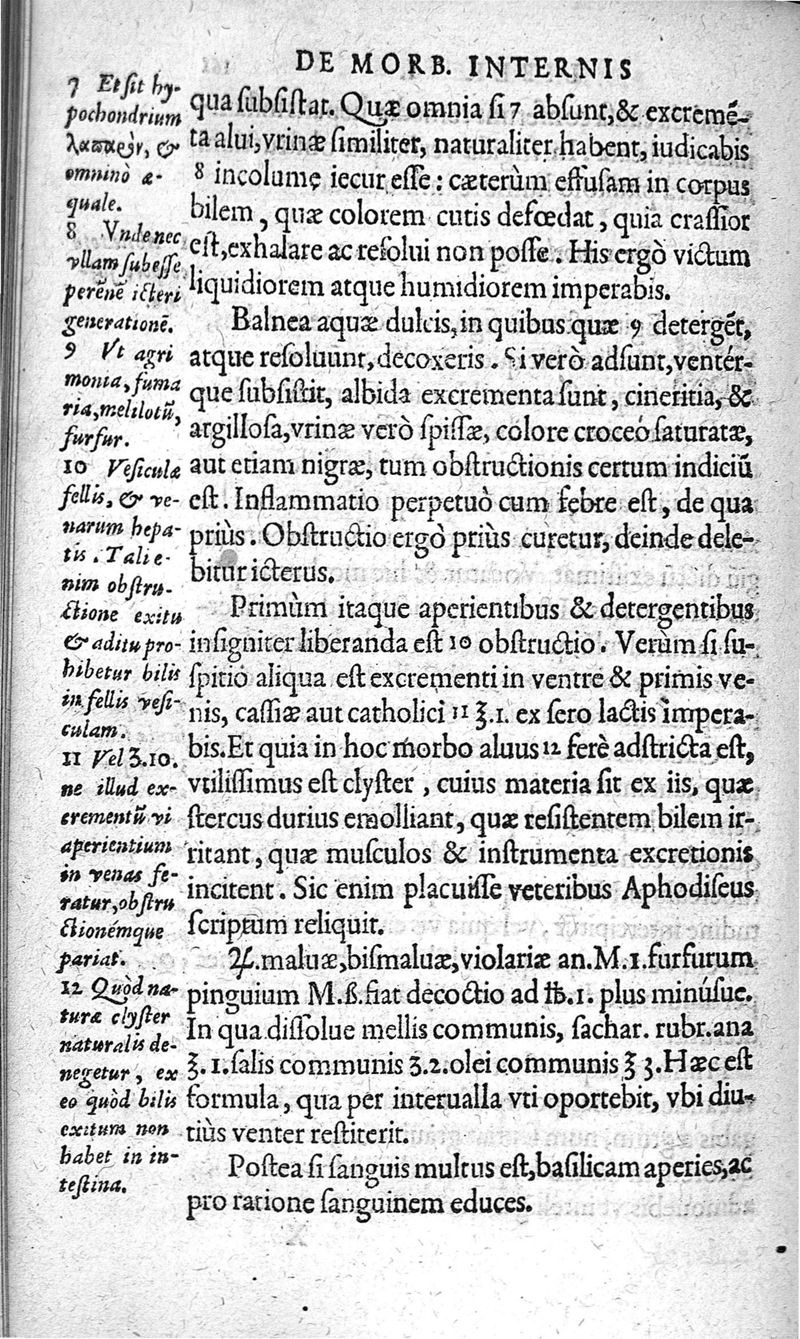 DE MORB. INTERNIS
qua subsistat. Quæ omnia si 7 absunt, & excremẽ-
ta alui, vrinæ similiter, naturaliter habent, iudicabis
8 incolume iecur esse: cæterùm effusam in corpus
bilem, quæ colorem cutis defœdat, quia crassior
est, exhalare ac resolui non posse. His ergò victum
liquidiorem atque humidiorem imperabis.
Balnea aquæ dulcis, in quibus quæ 9 detergẽt,
atque resoluunt, decoxeris. Si verò adsunt, ventér-
que subsistit, albida excrementa sunt, cineritia, &
argillosa, vrinæ verò spissæ, colore croceo saturatæ,
aut etiam nigræ, tum obstructionis certum indiciũ
est. Inflammatio perpetuò cum febre est, de qua
priùs. Obstructio ergò priùs curetur, deinde dele-
bitur icterus.
Primùm itaque aperientibus & detergentibus
insigniter liberanda est 10 obstructio. Verùm si su-
spitio aliqua est excrementi in ventre & primis ve-
nis, cassiæ aut catholici 11 ℥.1. ex sero lactis impera-
bis. Et quia in hoc morbo aluus 12 ferè adstricta est,
vtilissimus est clyster, cuius materia sit ex iis, quæ
stercus durius emolliant, quæ resistentem bilem ir-
ritant, quæ musculos & instrumenta excretionis
incitent. Sic enim placuisse veteribus Aphodiseus
scriptum reliquit.
♃. maluæ, bismaluæ, violariæ an. M.1. furfurum
pinguium M.ß. fiat decoctio ad ℔.1. plus minúsue.
In qua dissolue mellis communis, sachar. rubr. ana
℥.1. salis communis ʒ.2. olei communis ℥ 3. Hæc est
formula, qua per interualla vti oportebit, vbi diu-
tiùs venter restiterit.
Postea si sanguis multus est, basilicam aperies, ac
pro ratione sanguinem educes.
7 Et sit hy-
pochondrium
λαπαρὸν, &
omninò æ-
quale.
8 Vnde nec
vllam subesse
perẽnẽ icteri
generationẽ.
9 Vt agri
monia, fuma
ria, melilotũ,
furfur.
10 Vesiculæ
fellis, & ve-
narum hepa-
tis. Tali e-
nim obstru-
ctione exitu
& aditu pro-
hibetur bilis
in fellis vesi-
culam.
11 Vel ʒ.10.
ne illud ex-
crementũ vi
aperientium
in venas fe-
ratur, obstru
ctionémque
pariat.
12 Quòd na-
turæ clyster
naturalis de-
negetur, ex
eo quòd bilis
exitum non
habet in in-
testina.